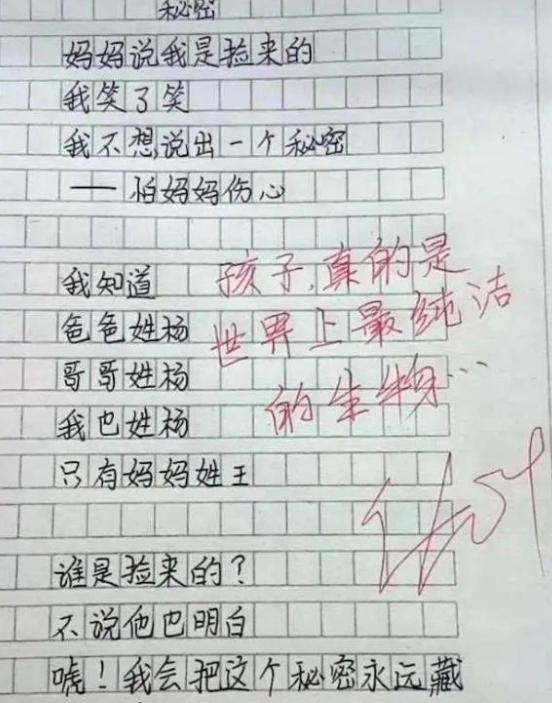 秘密
妈妈说我是捡来的
我笑了笑
我不想说出一个秘密
——怕妈妈伤心
我知道
爸爸姓杨
哥哥姓杨
我也姓杨
只有妈妈姓王
孩子,真的是
世界上最纯洁
的生物…
谁是捡来的?
不说他也明白
嘘!我会把这个秘密永远藏